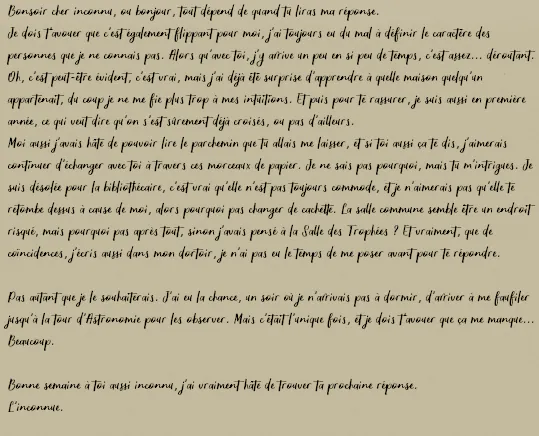 Bonsoir cher inconnu, ou bonjour, tout dépend de quand tu liras ma réponse.
Je dois t'avouer que c'est également flippant pour moi, j'ai toujours eu du mal à définir le caractère des
personnes que je ne connais pas. Alors qu'avec toi, j'y arrive un peu en si peu de temps, c'est assez... déroutant.
Oh, c'est peut-être évident, c'est vrai, mais j'ai déjà été surprise d'apprendre à quelle maison quelqu'un
appartenait, du coup je ne me fie plus trop à mes intuitions. Et puis pour te rassurer, je suis aussi en première
année, ce qui veut dire qu'on s'est sûrement déjà croisés, ou pas d'ailleurs.
Moi aussi j'avais hâte de pouvoir lire le parchemin que tu allais me laisser, et si toi aussi ça te dis, j'aimerais
continuer d'échanger avec toi à travers ces morceaux de papier. Je ne sais pas pourquoi, mais tu m'intrigues. Je
suis désolée pour la bibliothécaire, c'est vrai qu'elle n'est pas toujours commode, et je n'aimerais pas qu'elle te
retombe dessus à cause de moi, alors pourquoi pas changer de cachette. La salle commune semble être un endroit
risqué, mais pourquoi pas après tout, sinon j'avais pensé à la Salle des Trophées ? Et vraiment, que de
coïncidences, j'écris aussi dans mon dortoir, je n'ai pas eu le temps de me poser avant pour te répondre.

Pas autant que je le souhaiterais. J'ai eu la chance, un soir où je n'arrivais pas à dormir, d'arriver à me faufiler
jusqu'à la tour d'Astronomie pour les observer. Mais c'était l'unique fois, et je dois t'avouer que ça me manque...
Beaucoup.

Bonne semaine à toi aussi inconnu, j'ai vraiment hâte de trouver ta prochaine réponse.
L'inconnue.